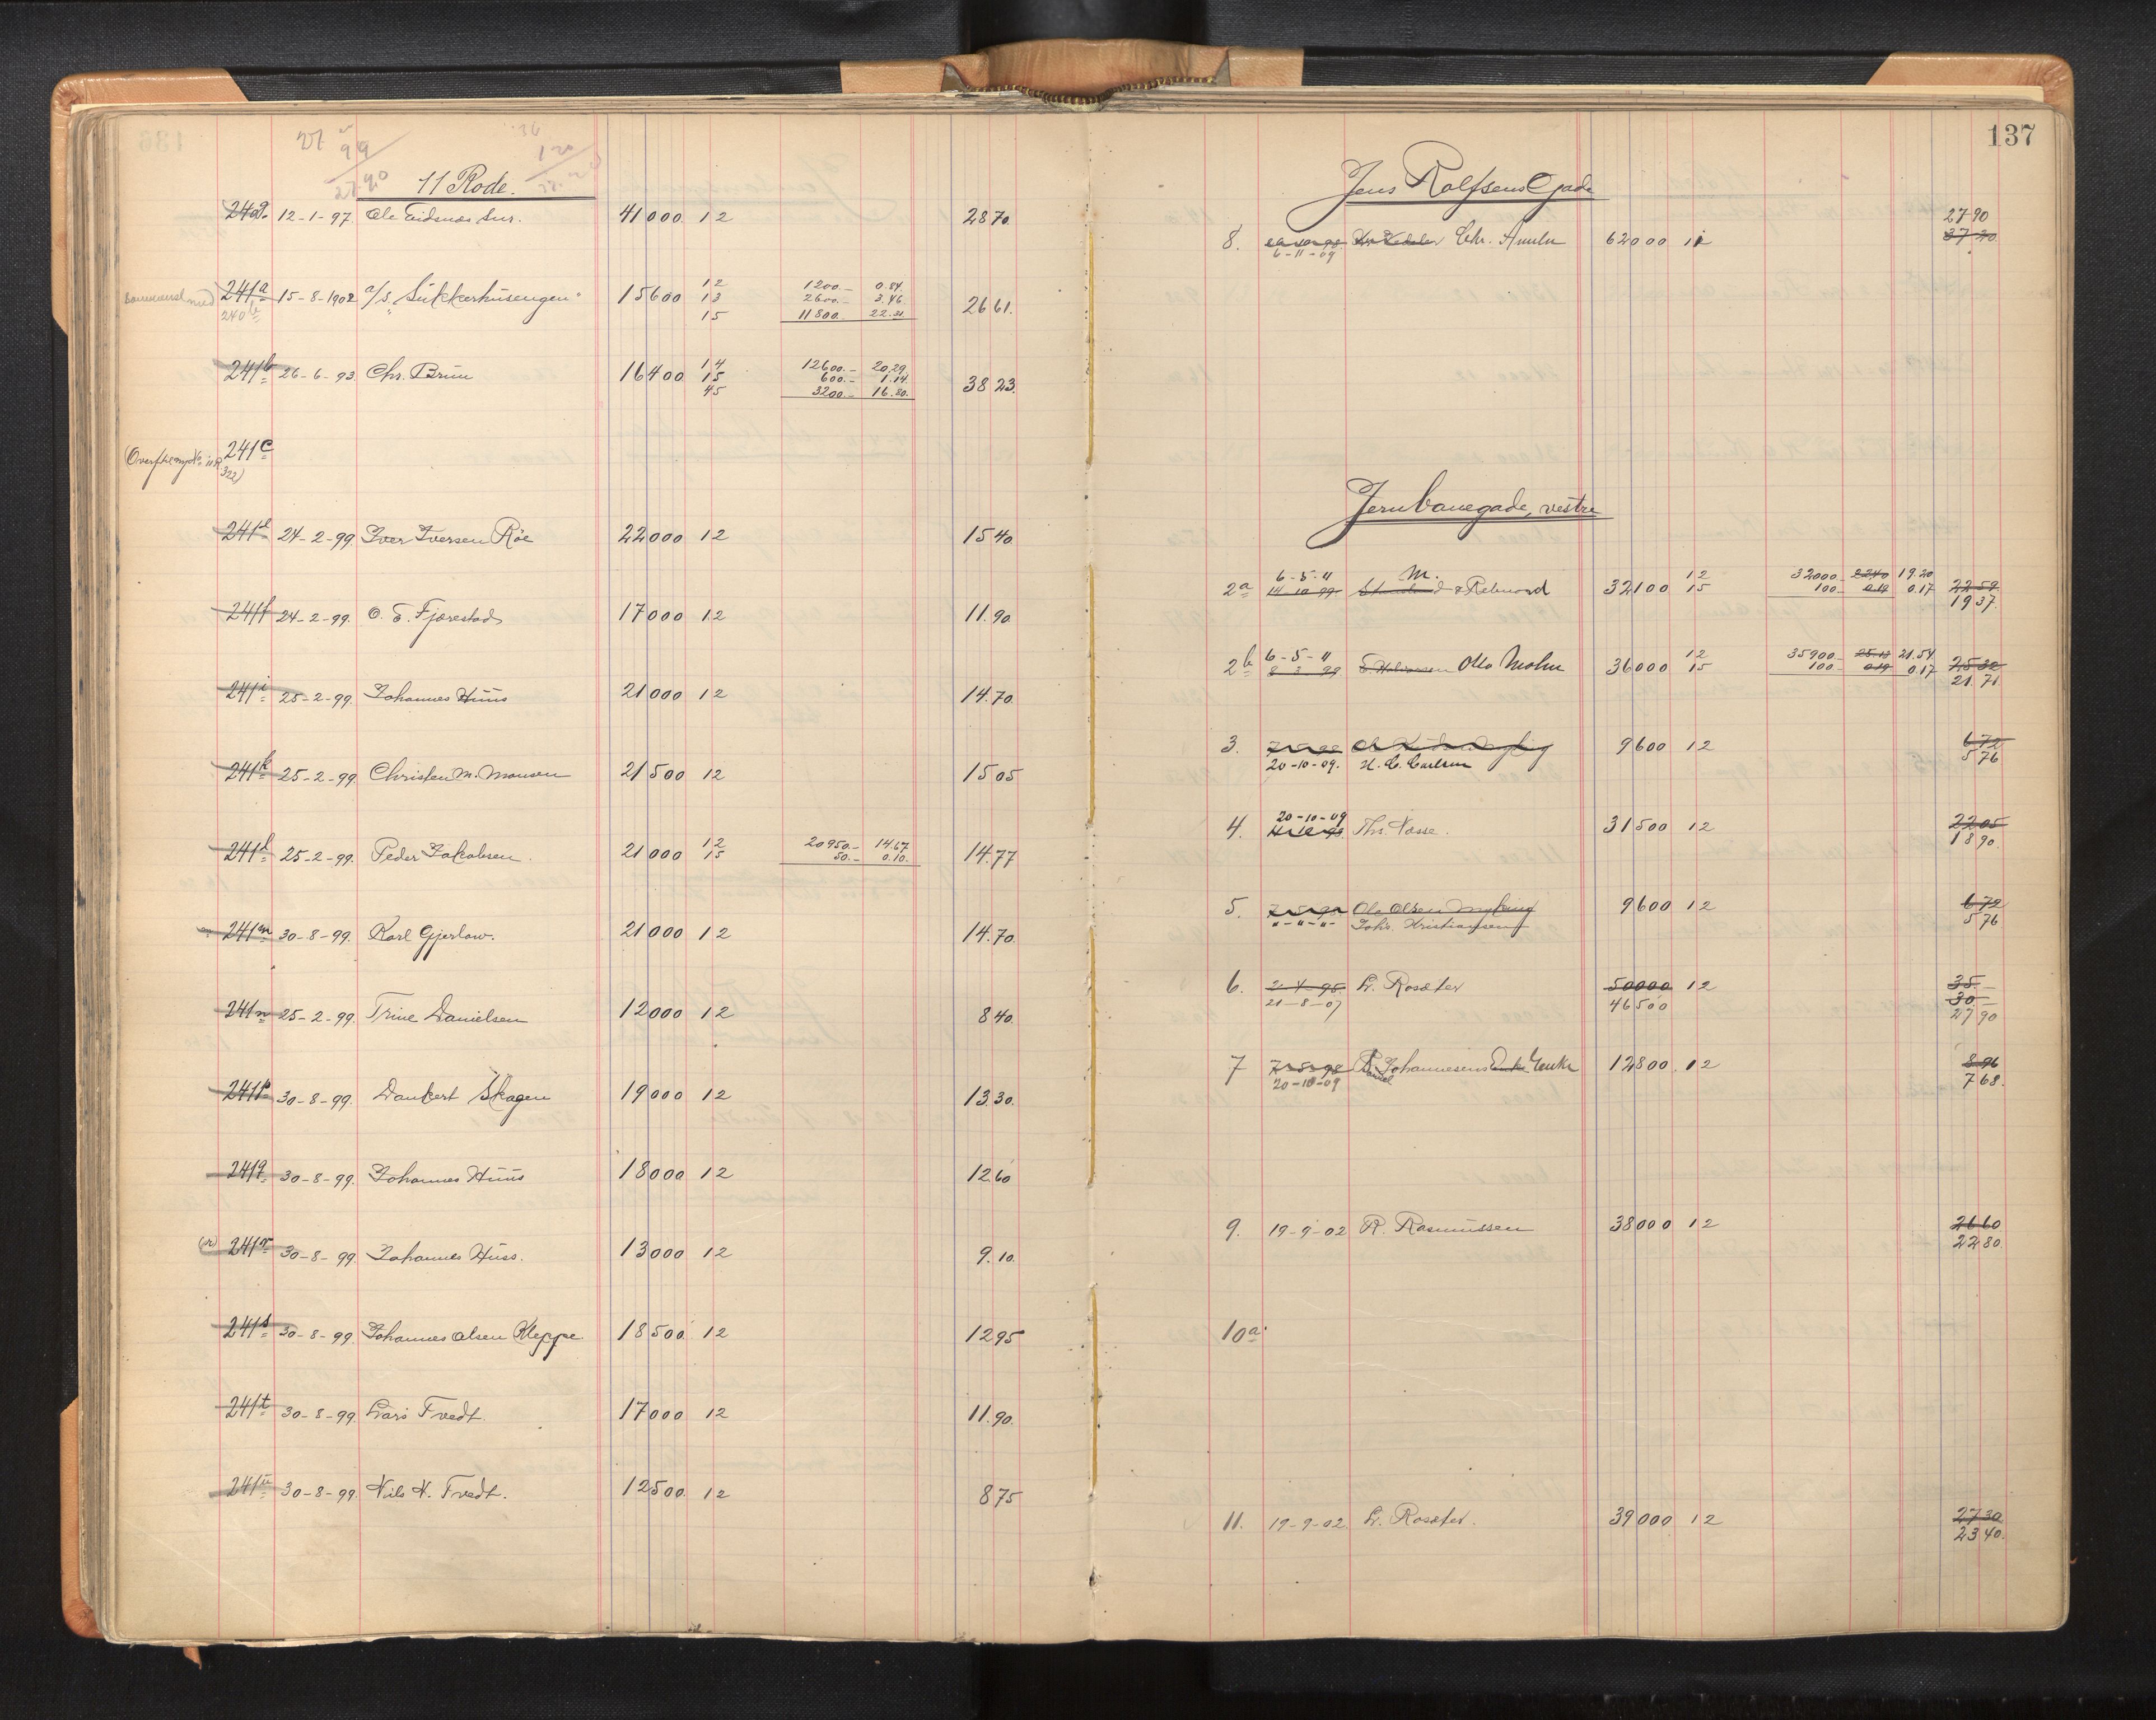 11 Rode.
240g. 12-1-97. Ole Eidsnæs sen. 41000 12 28 70
241a 15-8-1902 a/s „Sukkerhusengen“ 15600 12 1200.- 0.84.
240b 13 2600.- 3.46.
15 11800.- 22.31 26 61.
241b 26-6-93. Chr. Bruu 16400 14 12600.- 20.29
15 600.- 1.14.
45 3200.- 16.80. 38 23.
241c
322)
241d 24-2-99. Iver Iversen Röe 22000 12 15 40
241f 24-2-99. O. E. Fjærestad 17000 12 11.90
241i 25-2-99. Johannes Huus 21000 12 14.70.
241k 25-2-99. Christen M. Monsen 21500 12 15 05
241l 25-2-99. Peder Jakobsen. 21000 12 20950.- 14.67
15 50.- 0.10. 14.77
241m 30-8-99. Karl Gjerlow. 21000 12 14.70.
241n 25-2-99. Trine Danielsen 12000 12 8 40.
241p 30-8-99. Dankert Skagen 19000 12 13.30.
241q 30-8-99. Johannes Huus 18000 12 12.60
241r 30-8-99. Johannes Huss. 13000 12 9.10.
241s 30-8-99. Johannes Olsen Kleppe. 18500 12 12 95
241t 30-8-99. Lars Tvedt. 17000 12 11.90.
241u 30-8-99. Nils N. Tvedt. 12500 12 8 75
137
Jens Rolfsens Gade
27 90
8. Chr. 62000 12 37 20
6-11-09
Jernbanegade, vestre
2a 6-5-11 M. 32100 12 32000.- 22.40 19.20
14-10-99 15 100.- 0.19 0.17 22 59
19 37.
2b 6-5-11 Otto Mohn 36000 12 35900.- 25.13 21.54
8-3-99 15 100.- 0.19 0.17 25 32
21.71
3. 9600 12 6 72
20-10-09. H. C. Carlsen 5 76
4. 20-10-09 Ths. Vasse. 31500 12 22 05
18 90.
5. Ole Olsen Myking 9600 12 6 72
"-"-"- Johs. Kristiansen 5 76
6. L. Rosæter 50000 12 35.-
21-8-07 46500 30.-
27 90
7 Johannesens Enke 12800. 12 8 96
20-10-09 7 68.
9. 19-9-02 R. Rasmussen 38000 12 26 60
22 80.
10a.
11. 19-9-02 L. Rosæter. 39000 12 27 30
23 40.